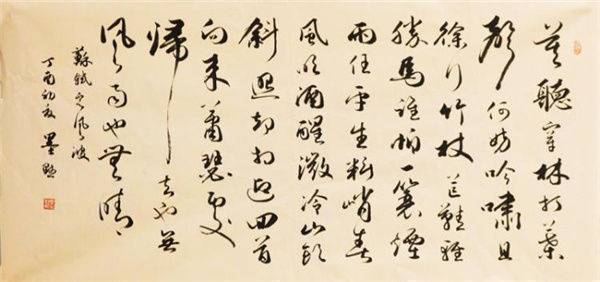 莫聽穿林打葉
聲何妨吟嘯且
徐行竹杖芒鞋輕
勝馬誰怕一蓑煙
雨任平生料峭春
風吹酒醒微冷山頭
斜照却相迎回首
向來蕭瑟處
歸去也無
風雨也無晴
蘇軾定風波
丁酉初 墨